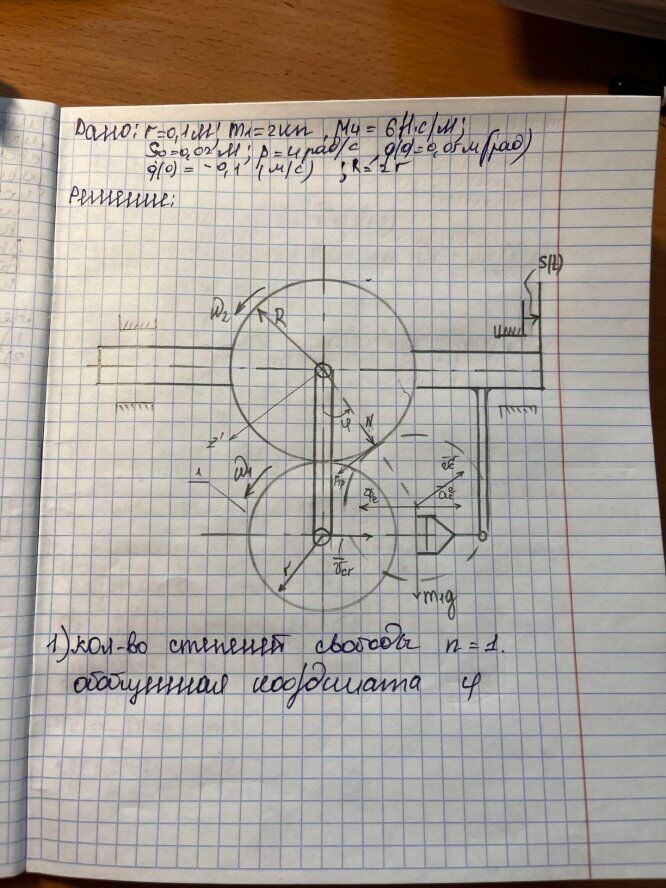 Дано: r=0,1м; m1=2кг, M4 = 6 Н·с/м;
S0=0,02 м; p=4 рад/с, q(0)=0,05 м(рад)
q̇(0) = -0,1 (м/с) ; R=2r
Решение:
S(t)
ω2
R
φ
N
z'
Fтр
1
ω1
r
m1g
1) кол-во степеней свободы n=1.
обобщенная координата φ